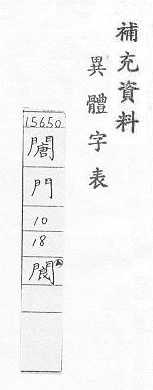 補充資料
異體字表
15650
閹
門
10
18